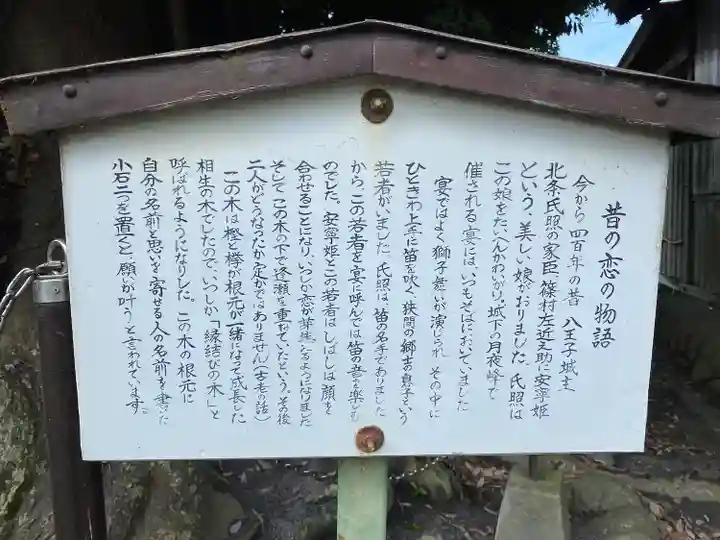 昔の恋の物語
今から四百年の昔 八王子城主
北条氏照の家臣、篠村左近之助に安寧姫
という、美しい娘がおりました。氏照は
この娘をたいへんかわいがり、城下の月夜峰で
催される宴には、いつもそばにおいていました
宴ではよく獅子舞いが演じられ その中に
ひときわ上手に笛を吹く、狭間の郷士の息子という
若者がいました。氏照は笛の名手でありました
から、この若者を宴に呼んでは笛の音を楽しむ
のでした。安寧姫とこの若者はしばしば顔を
合わせることになり、いつしか恋が芽生えるようになりました
そして この木の下で逢瀬を重ねていたという。その後
二人がどうなったか定かではありません(古老の話)
この木は樫と欅が根元が一緒になって成長した
相生の木でしたので、いつしか「縁結びの木」と
呼ばれるようになりした。この木の根元に
自分の名前と思いを寄せる人の名前を書いた
小石二つを置くと、願いが叶うと言われています